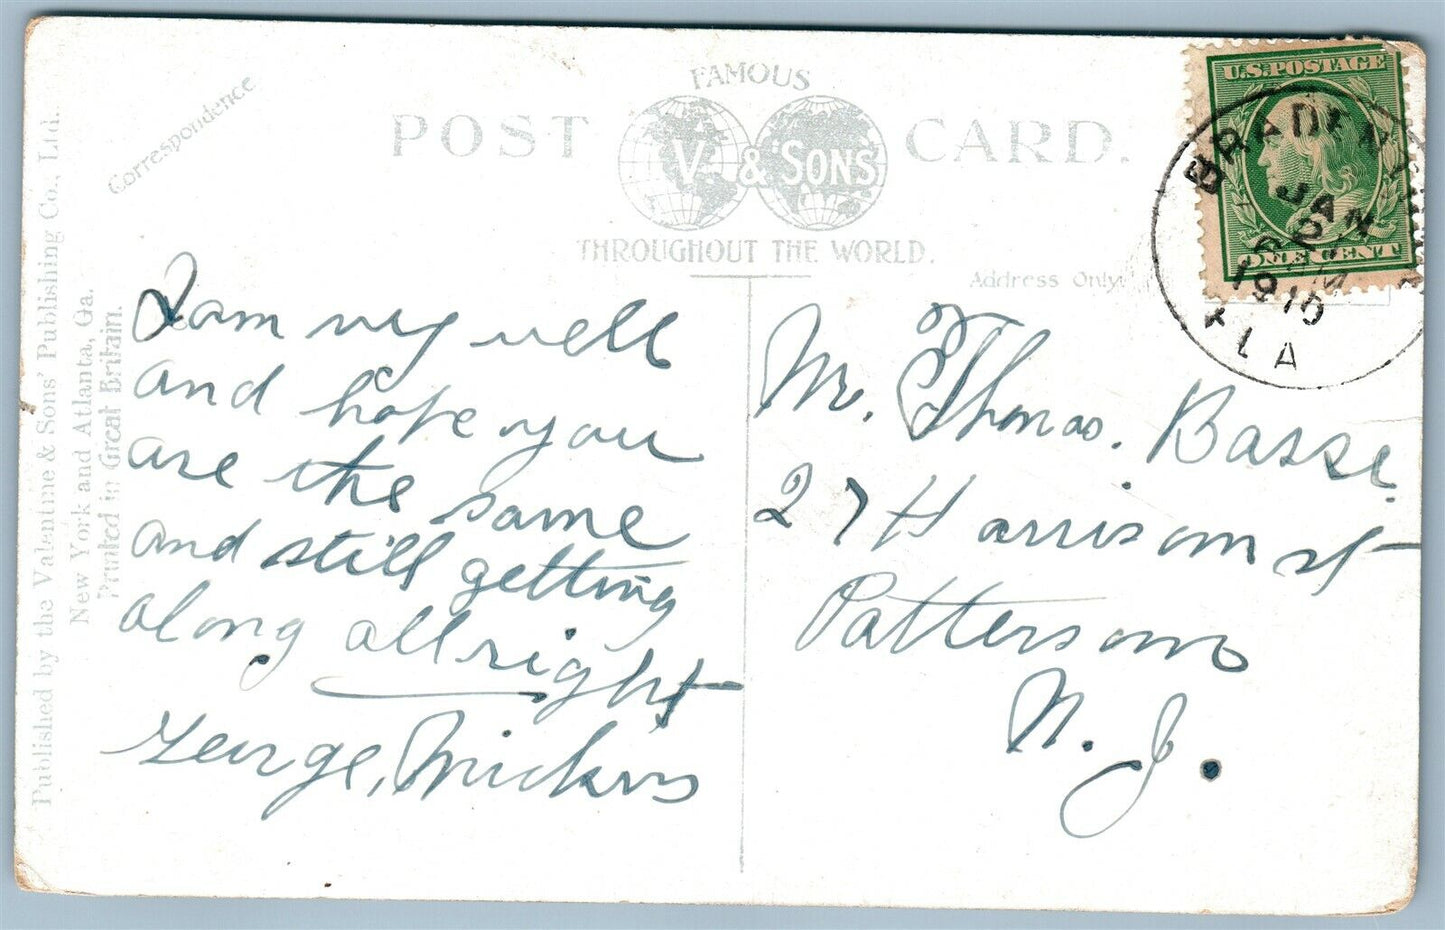 Correspondence
FAMOUS
POST CARD.
V. & SONS
THROUGHOUT THE WORLD.
Address Only.
U.S. POSTAGE
ONE CENT
JAN
6
1910
FLA
I am very well
and hope you
are the same
and still getting
along allright
George,
Mr. Thomas. Basse
27 Harrison st
Patterson
N. J.
Published by the Valentine & Sons' Publishing Co., Ltd.
New York and Atlanta, Ga.
Printed in Great Britain.